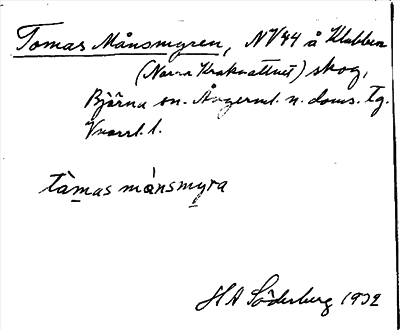 Tomas Månsmyren, NV44 å Klabben
(Norra Krakvattnet) skog,
Björna sn. Ångerml. n. doms. tg.
Vnorrl. l.
tàmas mánsmyra
HA Söderberg 1932